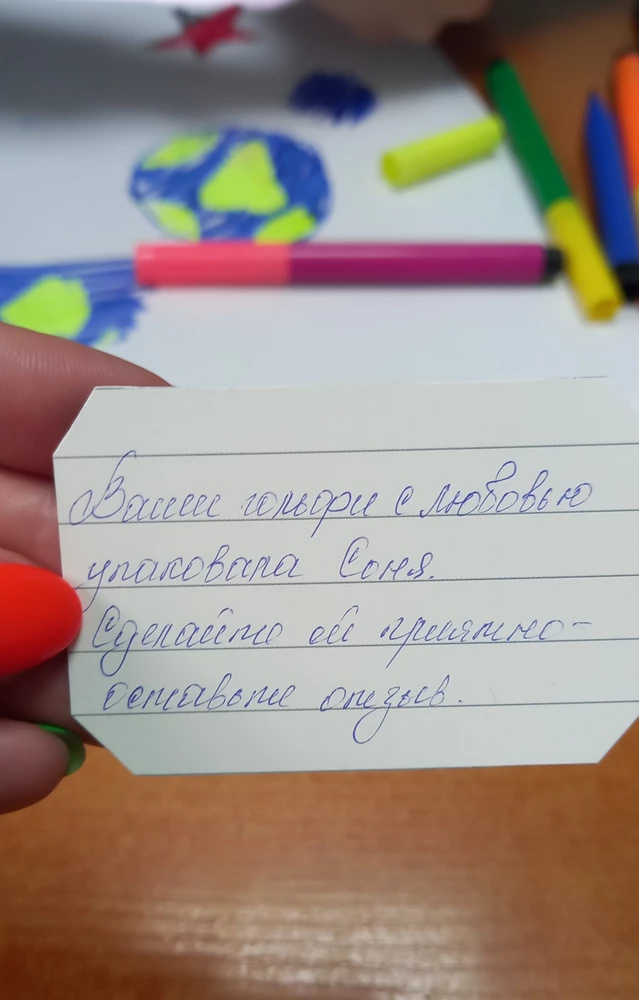 Ваши гольфи с любовью
упаковала Соня.
Сделайте ей приятно-
оставьте отзыв.